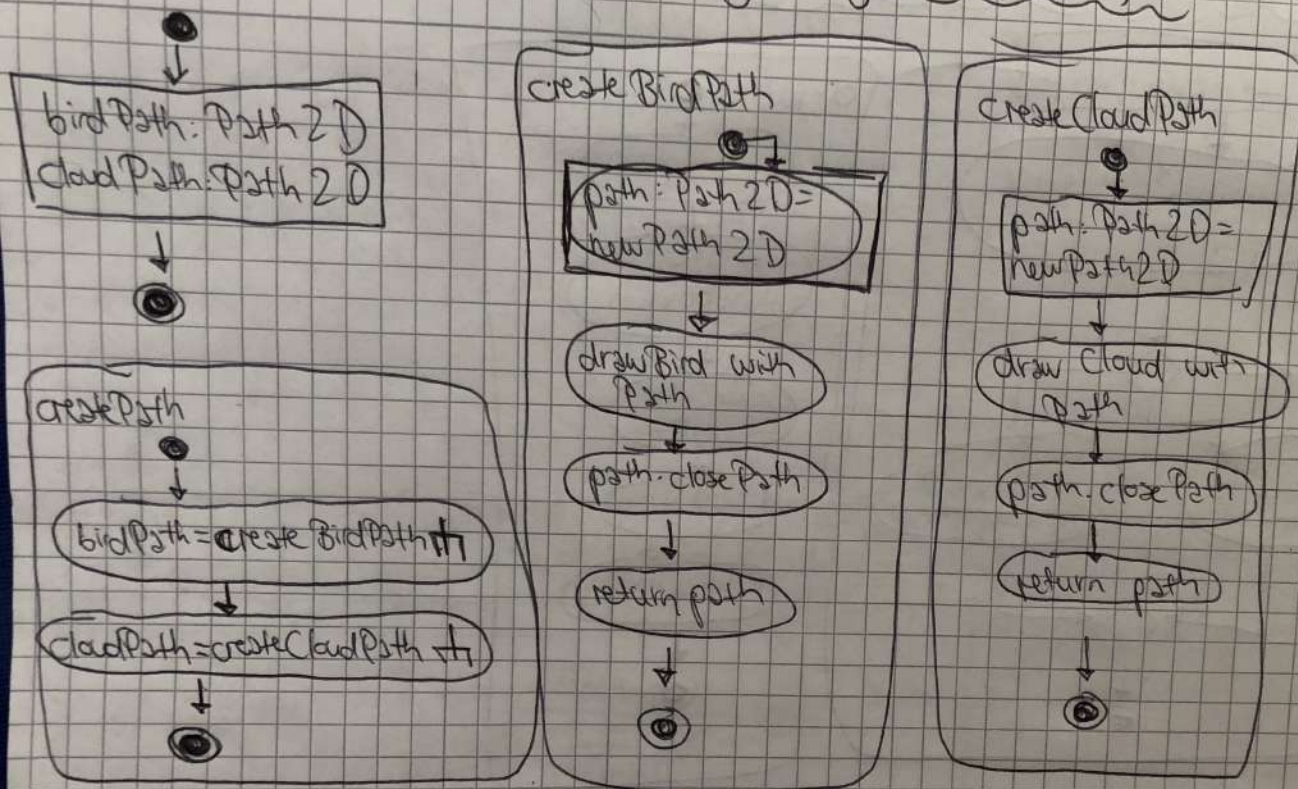 birdPath: Path2D
cloudPath: Path2D
createPath
birdPath = createBirdPath
cloudPath = createCloudPath
createBirdPath
path: Path2D =
newPath2D
drawBird with
Path
path.closePath
return path
createCloudPath
path: Path2D =
newPath2D
draw Cloud with
path
path.closePath
return path